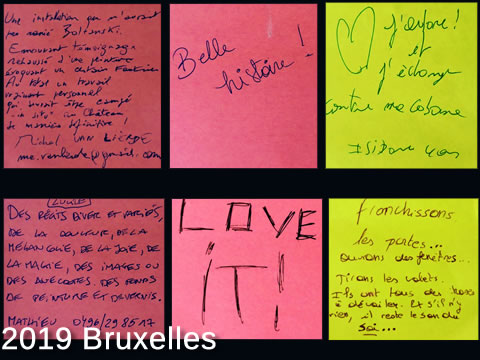 Une installation qui m'aurait
pas renié Boltanski.
Emouvant témoignage
rehaussé d'une peinture
évoquant un certain Fantaisie
Au total un travail
vraiment personnel
qui aurait être campé
"in situ" au Château
de manière définitive !
Michel VAN LIERDE
Belle
histoire !
j'adore !
et
j'échange
contre ma cabane
Isidore
LUCILE
DES RÉCITS DIVERS ET VARIÉS,
DE LA DOULEUR, DE LA
MÉLANCOLIE, DE LA JOIE, DE
LA MAGIE, DES IMAGES OU
DES ANECDOTES. DES FONDS
DE PEINTURE ET DE VERNIS.
MATHIEU 0496/298517
LOVE
iT!
franchissons
les portes...
ouvrons des fenêtres...
Tirons les volets.
Ils ont tous des choses
à dévoiler. Et s'il n'y
rien, il reste le son du
soi...
2019 Bruxelles